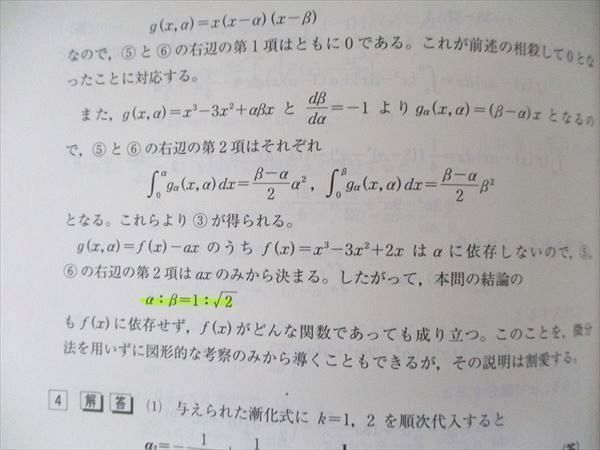 g(x, α)=x(x−α)(x−β)
なので，⑤と⑥の右辺の第1項はともに0である。これが前述の相殺して0とな
ったことに対応する。
また，g(x, α)=x³−3x²+αβx と dβ/dα=−1 より gα(x, α)=(β−α)x となるの
で，⑤と⑥の右辺の第2項はそれぞれ
∫₀^α gα(x, α)dx=(β−α)/2 α²，∫₀^β gα(x, α)dx=(β−α)/2 β²
となる。これらより③が得られる。
g(x, α)=f(x)−ax のうち f(x)=x³−3x²+2x は α に依存しないので，⑤，
⑥の右辺の第2項は ax のみから決まる。したがって，本問の結論の
α：β=1：√2
も f(x) に依存せず，f(x) がどんな関数であっても成り立つ。このことを，微分
法を用いずに図形的な考察のみから導くこともできるが，その説明は割愛する。
4 解答 (1) 与えられた漸化式に k=1，2 を順次代入すると